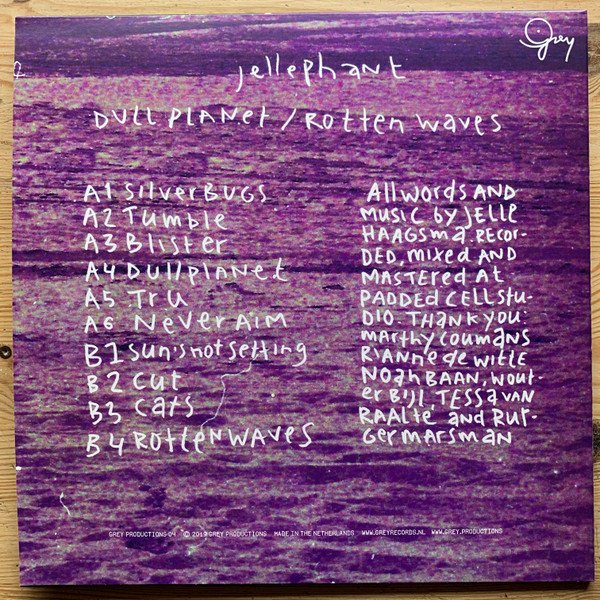 Grey
jellephant
DULL PLANet / Rotten waves
A1 SilverBUGS
A2 Tumble
A3 Blister
A4 DullPLANet
A5 Tru
A6 NeverAim
B1 sun's not setting
B2 cut
B3 cats
B4 ROttenWAVeS
All words AND
MUSIC by JELLE
HAAGSMA RECOR-
DED, mixed AND
MASTERED AT
PADDED CELL STU-
DIO. THANK YOU:
MARTHY COUMANS
RIANNE de WITTE
NOAH BAAN, WOUT-
er BIJL, TESSA VAN
RAALTE and RUT-
Ger MARSMAN
GREY PRODUCTIONS 04 © 2019 GREY PRODUCTIONS MADE IN THE NETHERLANDS WWW.GREYRECORDS.NL WWW.GREY.PRODUCTIONS